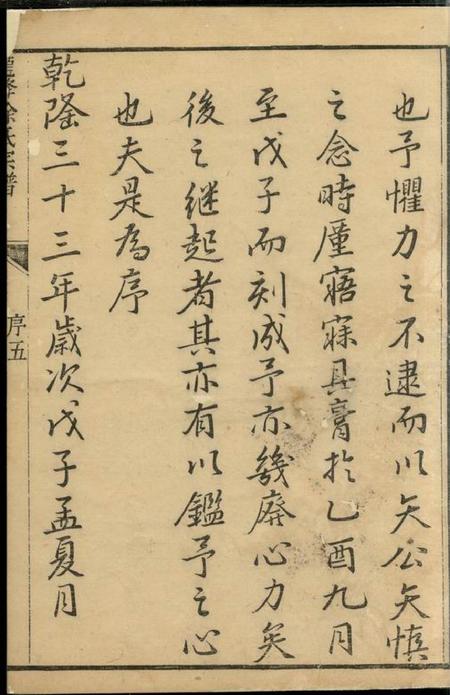 也予懼力之不逮而以矢公矢慎
之念時厪寤寐具膏於乙酉九月
至戊子而刻成予亦幾廢心力矣
後之继起者其亦有以鑑予之心
也夫是為序
乾隆三十三年歲次戊子孟夏月
徐氏宗譜
序五